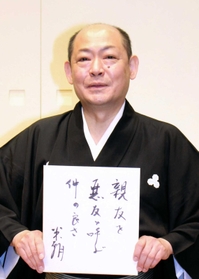 親友を
悪友と呼ぶ
仲の良さ